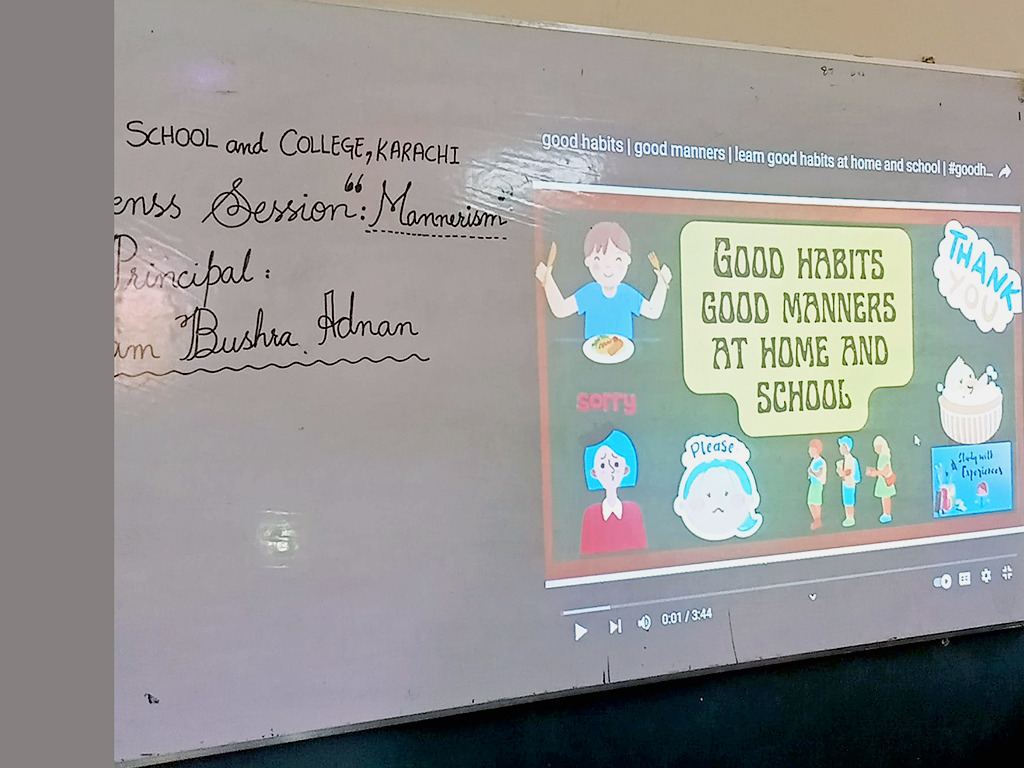 SCHOOL and COLLEGE, KARACHI
Session: "Mannerism"
Principal:
Bushra Adnan
good habits | good manners | learn good habits at home and school | #goodh...
GOOD HABITS
GOOD MANNERS
AT HOME AND
SCHOOL
THANK
YOU
sorry
Please
Study with
Experiences
0:01 / 3:44